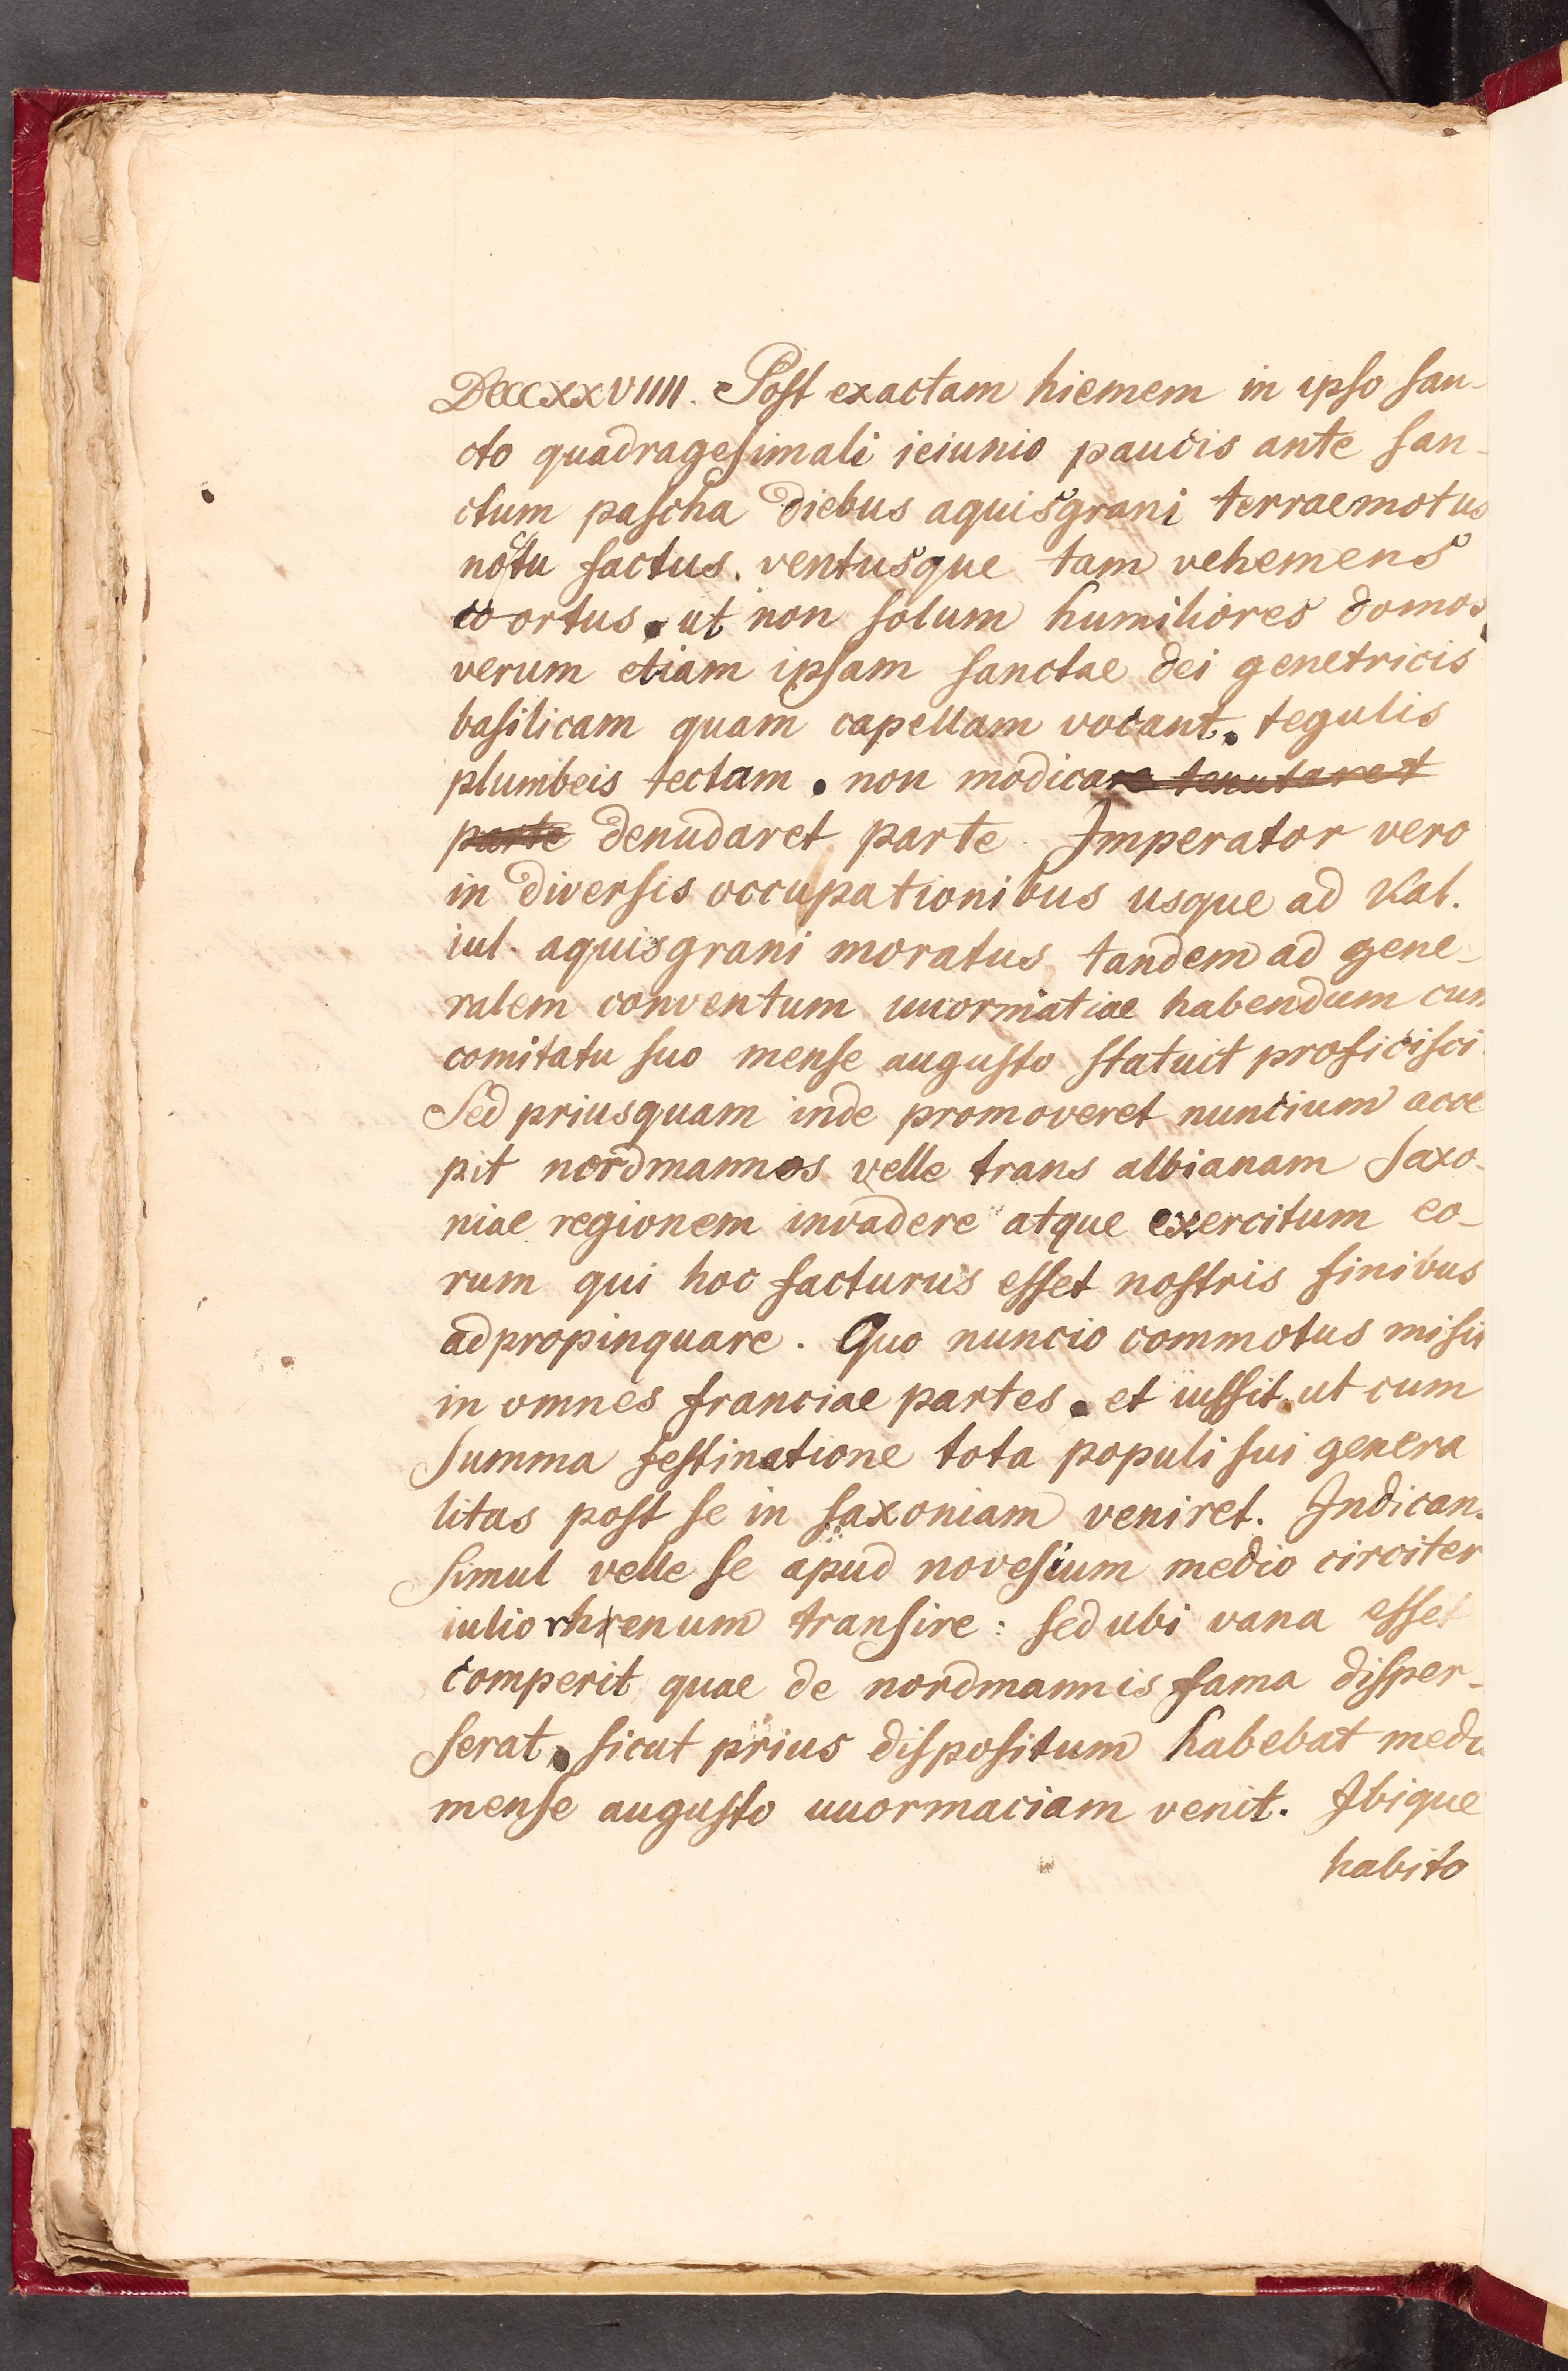 DCCCXXVIIII. Post exactam hiemem in ipso san-
cto quadragesimali ieiunio paucis ante san-
ctum pascha diebus aquisgrani terraemotus
noctu factus. ventusque tam vehemens
coortus. ut non solum humiliores domos
verum etiam ipsam sanctae dei genetricis
basilicam quam capellam vocant. tegulis
plumbeis tectam. non modica
parte denudaret parte. Imperator vero
in diversis occupationibus usque ad Kal.
iul. aquisgrani moratus tandem ad gene-
ralem conventum uuormatiae habendum cum
comitatu suo mense augusto statuit proficisci.
Sed priusquam inde promoveret nuncium acce
pit nordmannos velle trans albianam Saxo-
niae regionem invadere atque exercitum eo-
rum qui hoc facturus esset nostris finibus
adpropinquare. Quo nuncio commotus misit
in omnes franciae partes. et iussit. ut cum
summa festinatione tota populi sui genera
litas post se in saxoniam veniret. Indican.
Simul velle se apud novesium medio circiter
iulio rhenum transire: sed ubi vana esset
comperit quae de nordmannis fama disper-
serat. sicut prius dispositum habebat medi
mense augusto uuormaciam venit. Ibique
habito